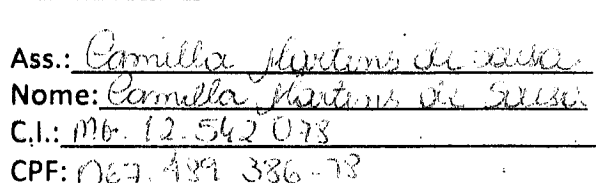 Ass.: Camilla Martins de Sousa
Nome: Camilla Martins de Sousa
C.I.: MG. 12.542 078
CPF: 067.489 386-78